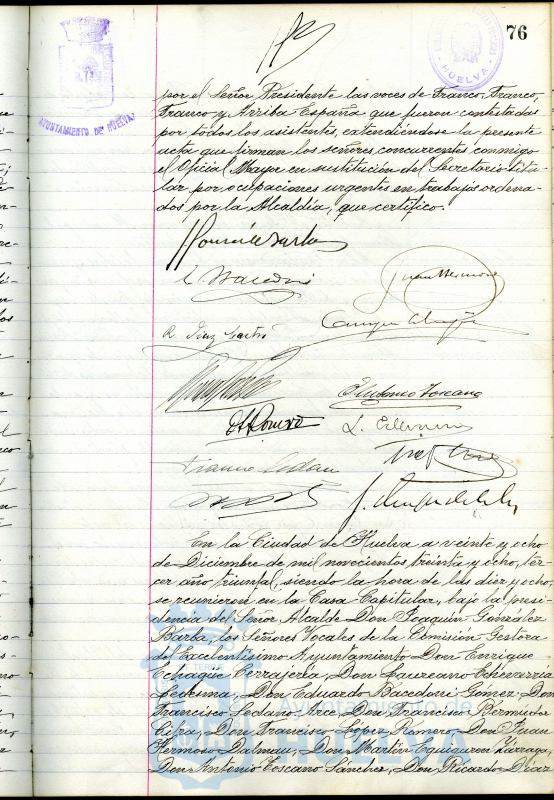 76
AYUNTAMIENTO DE HUELVA
HUELVA
por el Señor Presidente las voces de Franco, Franco,
Franco y Arriba España que fueron contestadas
por todos los asistentes, extendiéndose la presente
acta que firman los señores concurrentes conmigo
el Oficial Mayor en sustitución del Secretario titu-
lar por ocupaciones urgentes en trabajos ordena-
dos por la Alcaldía, que certifico.
E. Bacedoni
Juan Hermoso
R. Díaz
Antonio Toscano
Romero
En la Ciudad de Huelva a veinte y ocho
de Diciembre de mil novecientos treinta y ocho, ter-
cer año triunfal, siendo la hora de las diez y ocho,
se reunieron en la Casa Capitular, bajo la presi-
dencia del Señor Alcalde Don Joaquín González
Barba, los Señores Vocales de la Comisión Gestora
del Excelentísimo Ayuntamiento Don Enrique
Echague Cerrajería, Don Laureano Echevarria
Ledesma, Don Eduardo Bacedoni Gómez, Don
Francisco Sedano Arce, Don Francisco Bermudez
Cifra, Don Francisco López Romero, Don Juan
Hermoso Dalmau, Don Martín Eguiguren Lárraga,
Don Antonio Toscano Sánchez, Don Ricardo Díaz
Ayuntamiento de
HUELVA